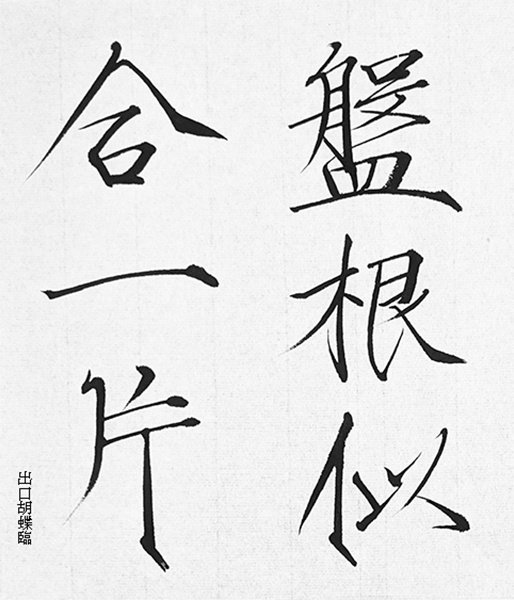 盤根似
合一片
出口胡蝶臨